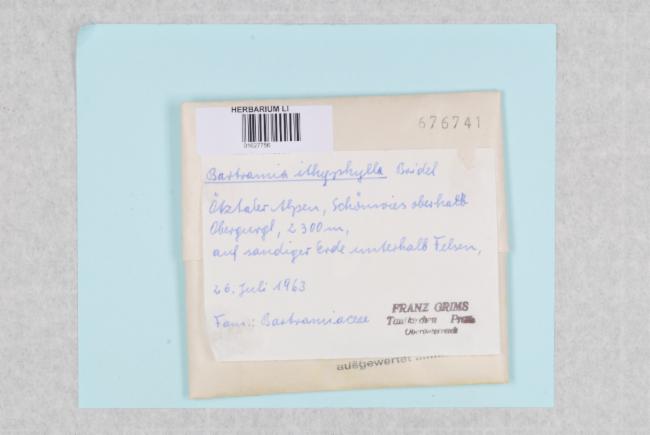 HERBARIUM LI
01627756
676741
Bartramia ithyphylla Bridel
Ötztaler Alpen, Schönwies oberhalb
Obergurgl, 2300 m,
auf sandiger Erde unterhalb Felsen,
26. Juli 1963
Fam.: Bartramiaceae
FRANZ GRIMS
Taufkirchen Pram
Oberösterreich
ausgewertet